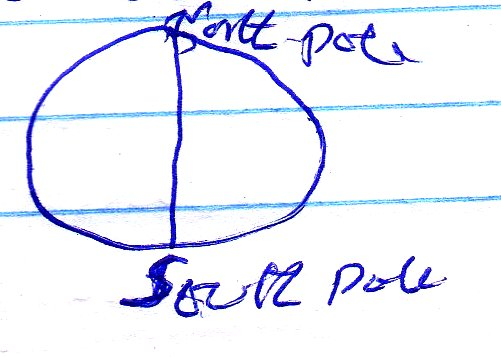 North pole
South pole